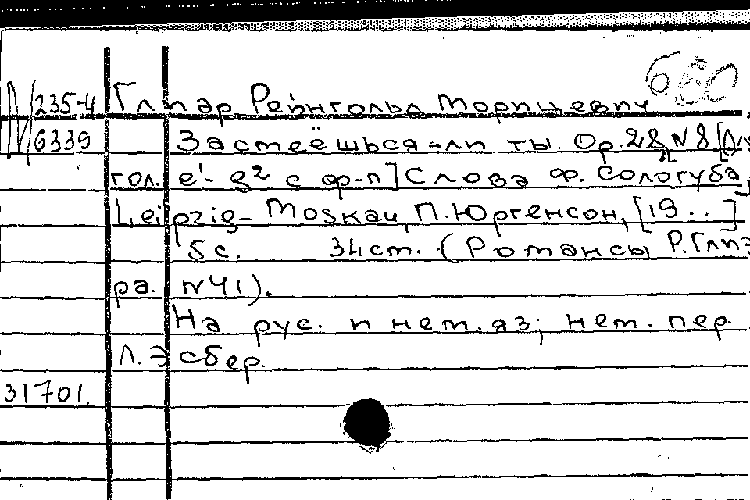 М 235-4 Глиэр Рейнгольд Морицевич
6339 Засмеёшься-ли ты. Ор.28 N 8 [Для
гол. е¹-g² с ф-п] Слова Ф. Сологуба,
Leipzig- Moskau, П. Юргенсон, [19..]
5с. 34см. (Романсы Р. Глиэ
ра. N41).
На рус. и нем. яз; нем. пер
Л. Эсбер.
31701.